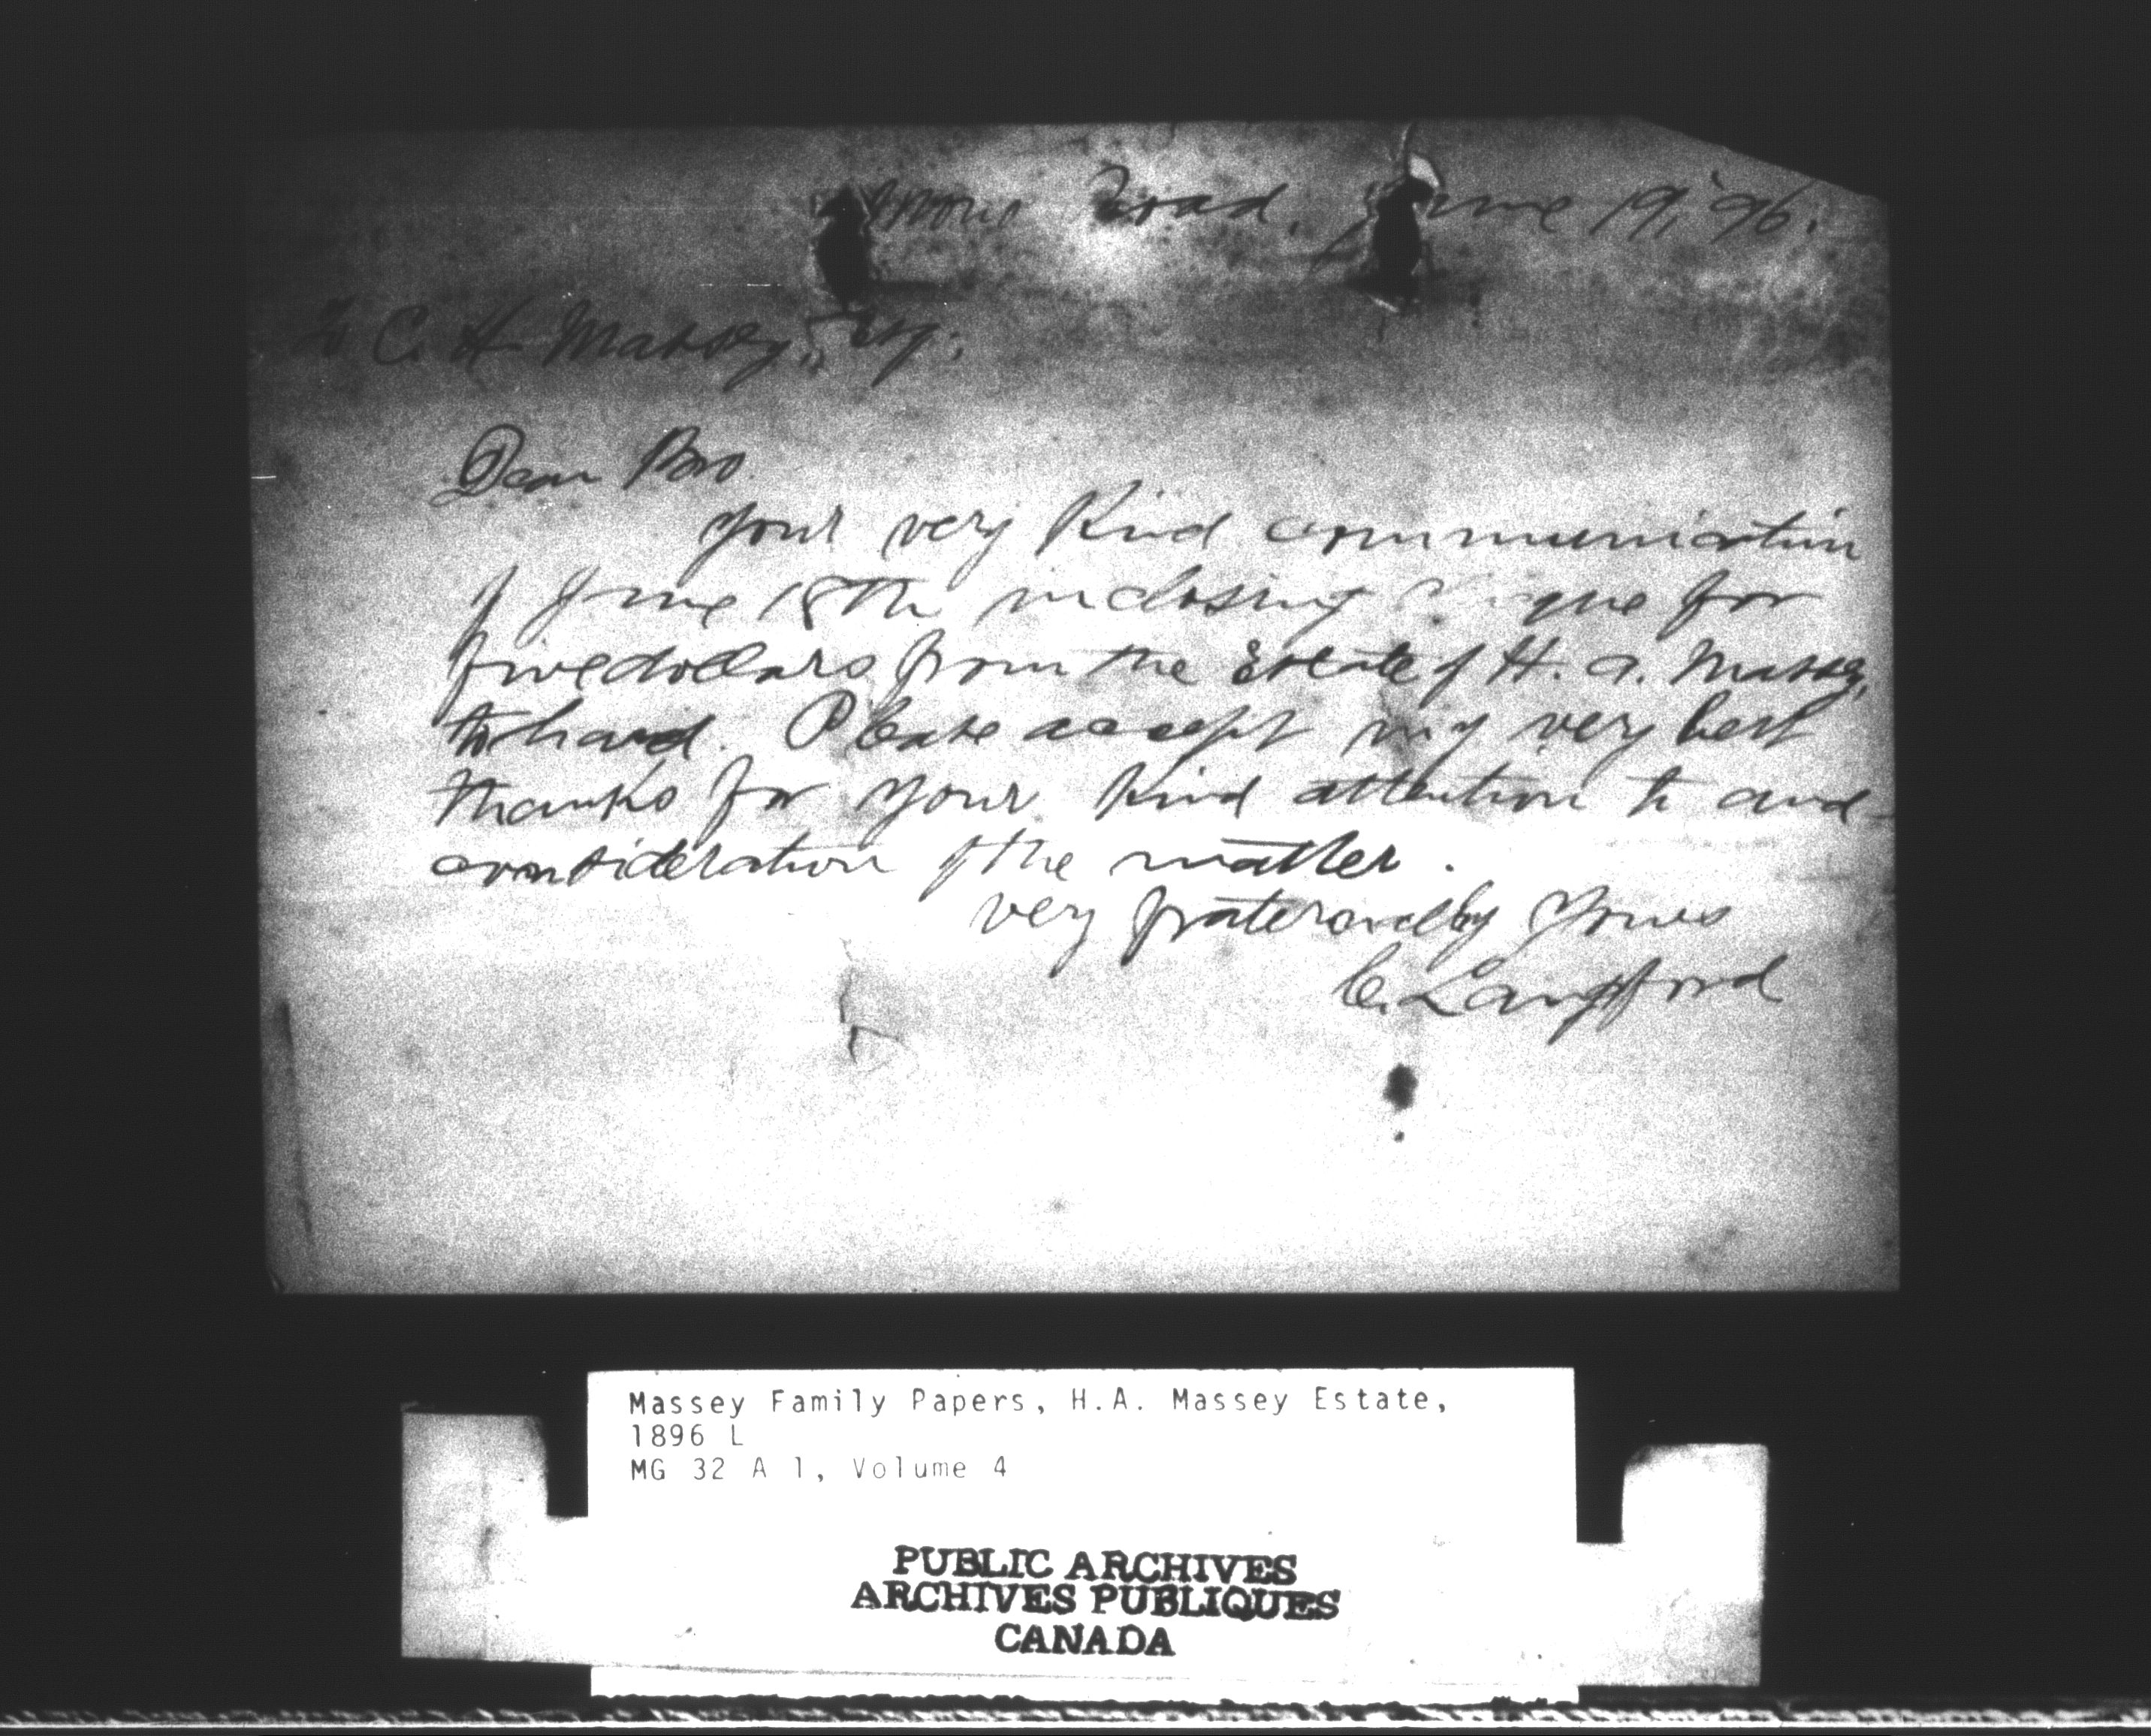 Road, June 19, '96.
To C. H. Massey, Esq.
Dear Bro.
Your very kind communication
of June 18th inclosing cheque for
five dollars from the Estate of H. A. Massey,
to hand. Please accept my very best
thanks for your kind attention to and
consideration of the matter.
Very fraternally Yours
C. Langford
Massey Family Papers, H.A. Massey Estate,
1896 L
MG 32 A 1, Volume 4
PUBLIC ARCHIVES
ARCHIVES PUBLIQUES
CANADA